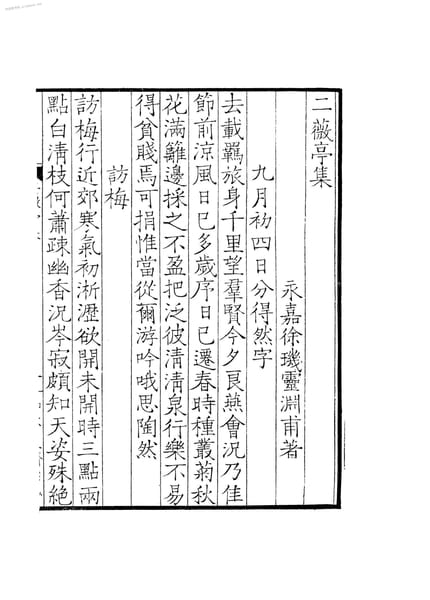 二薇亭集
永嘉徐璣靈淵甫著
九月初四日分得然字
去載羈旅身千里望羣賢今夕良燕會況乃佳
節前涼風日已多歲序日已遷春時種叢菊秋
花滿籬邊採之不盈把泛彼清清泉行樂不易
得貧賤焉可捐惟當從爾游吟哦思陶然
訪梅
訪梅行近郊寒氣初淅瀝欲開未開時三點兩
點白清枝何蕭疎幽香況岑寂頗知天姿殊絶